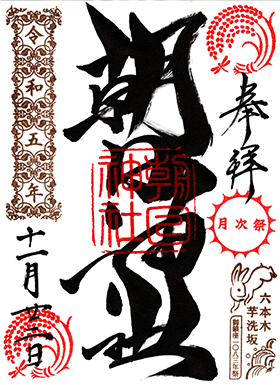 奉拝
月次祭
六本木
芋洗坂
朝日神社
朝日
神社
令和五年
十一月